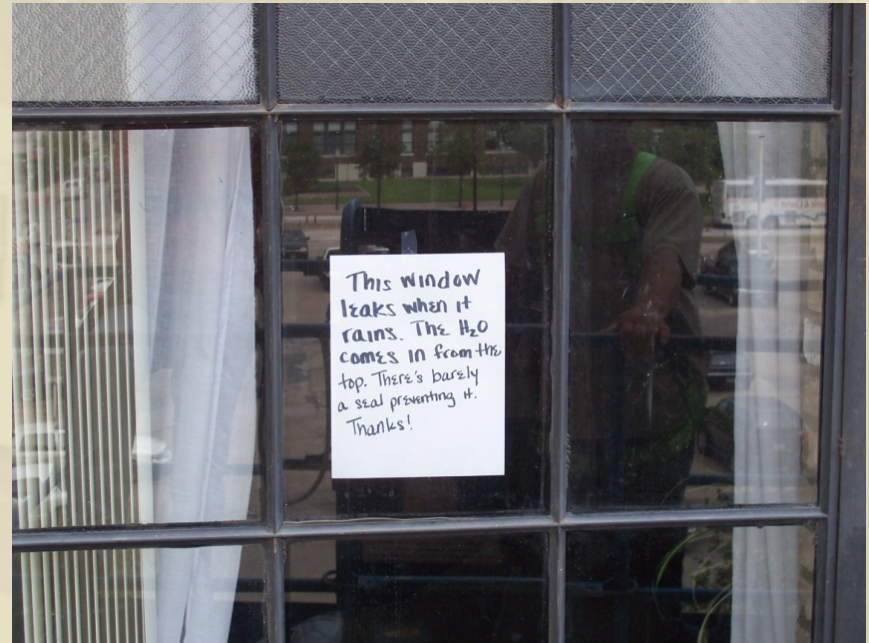 This window
leaks when it
rains. The H₂O
comes in from the
top. There's barely
a seal preventing it.
Thanks!